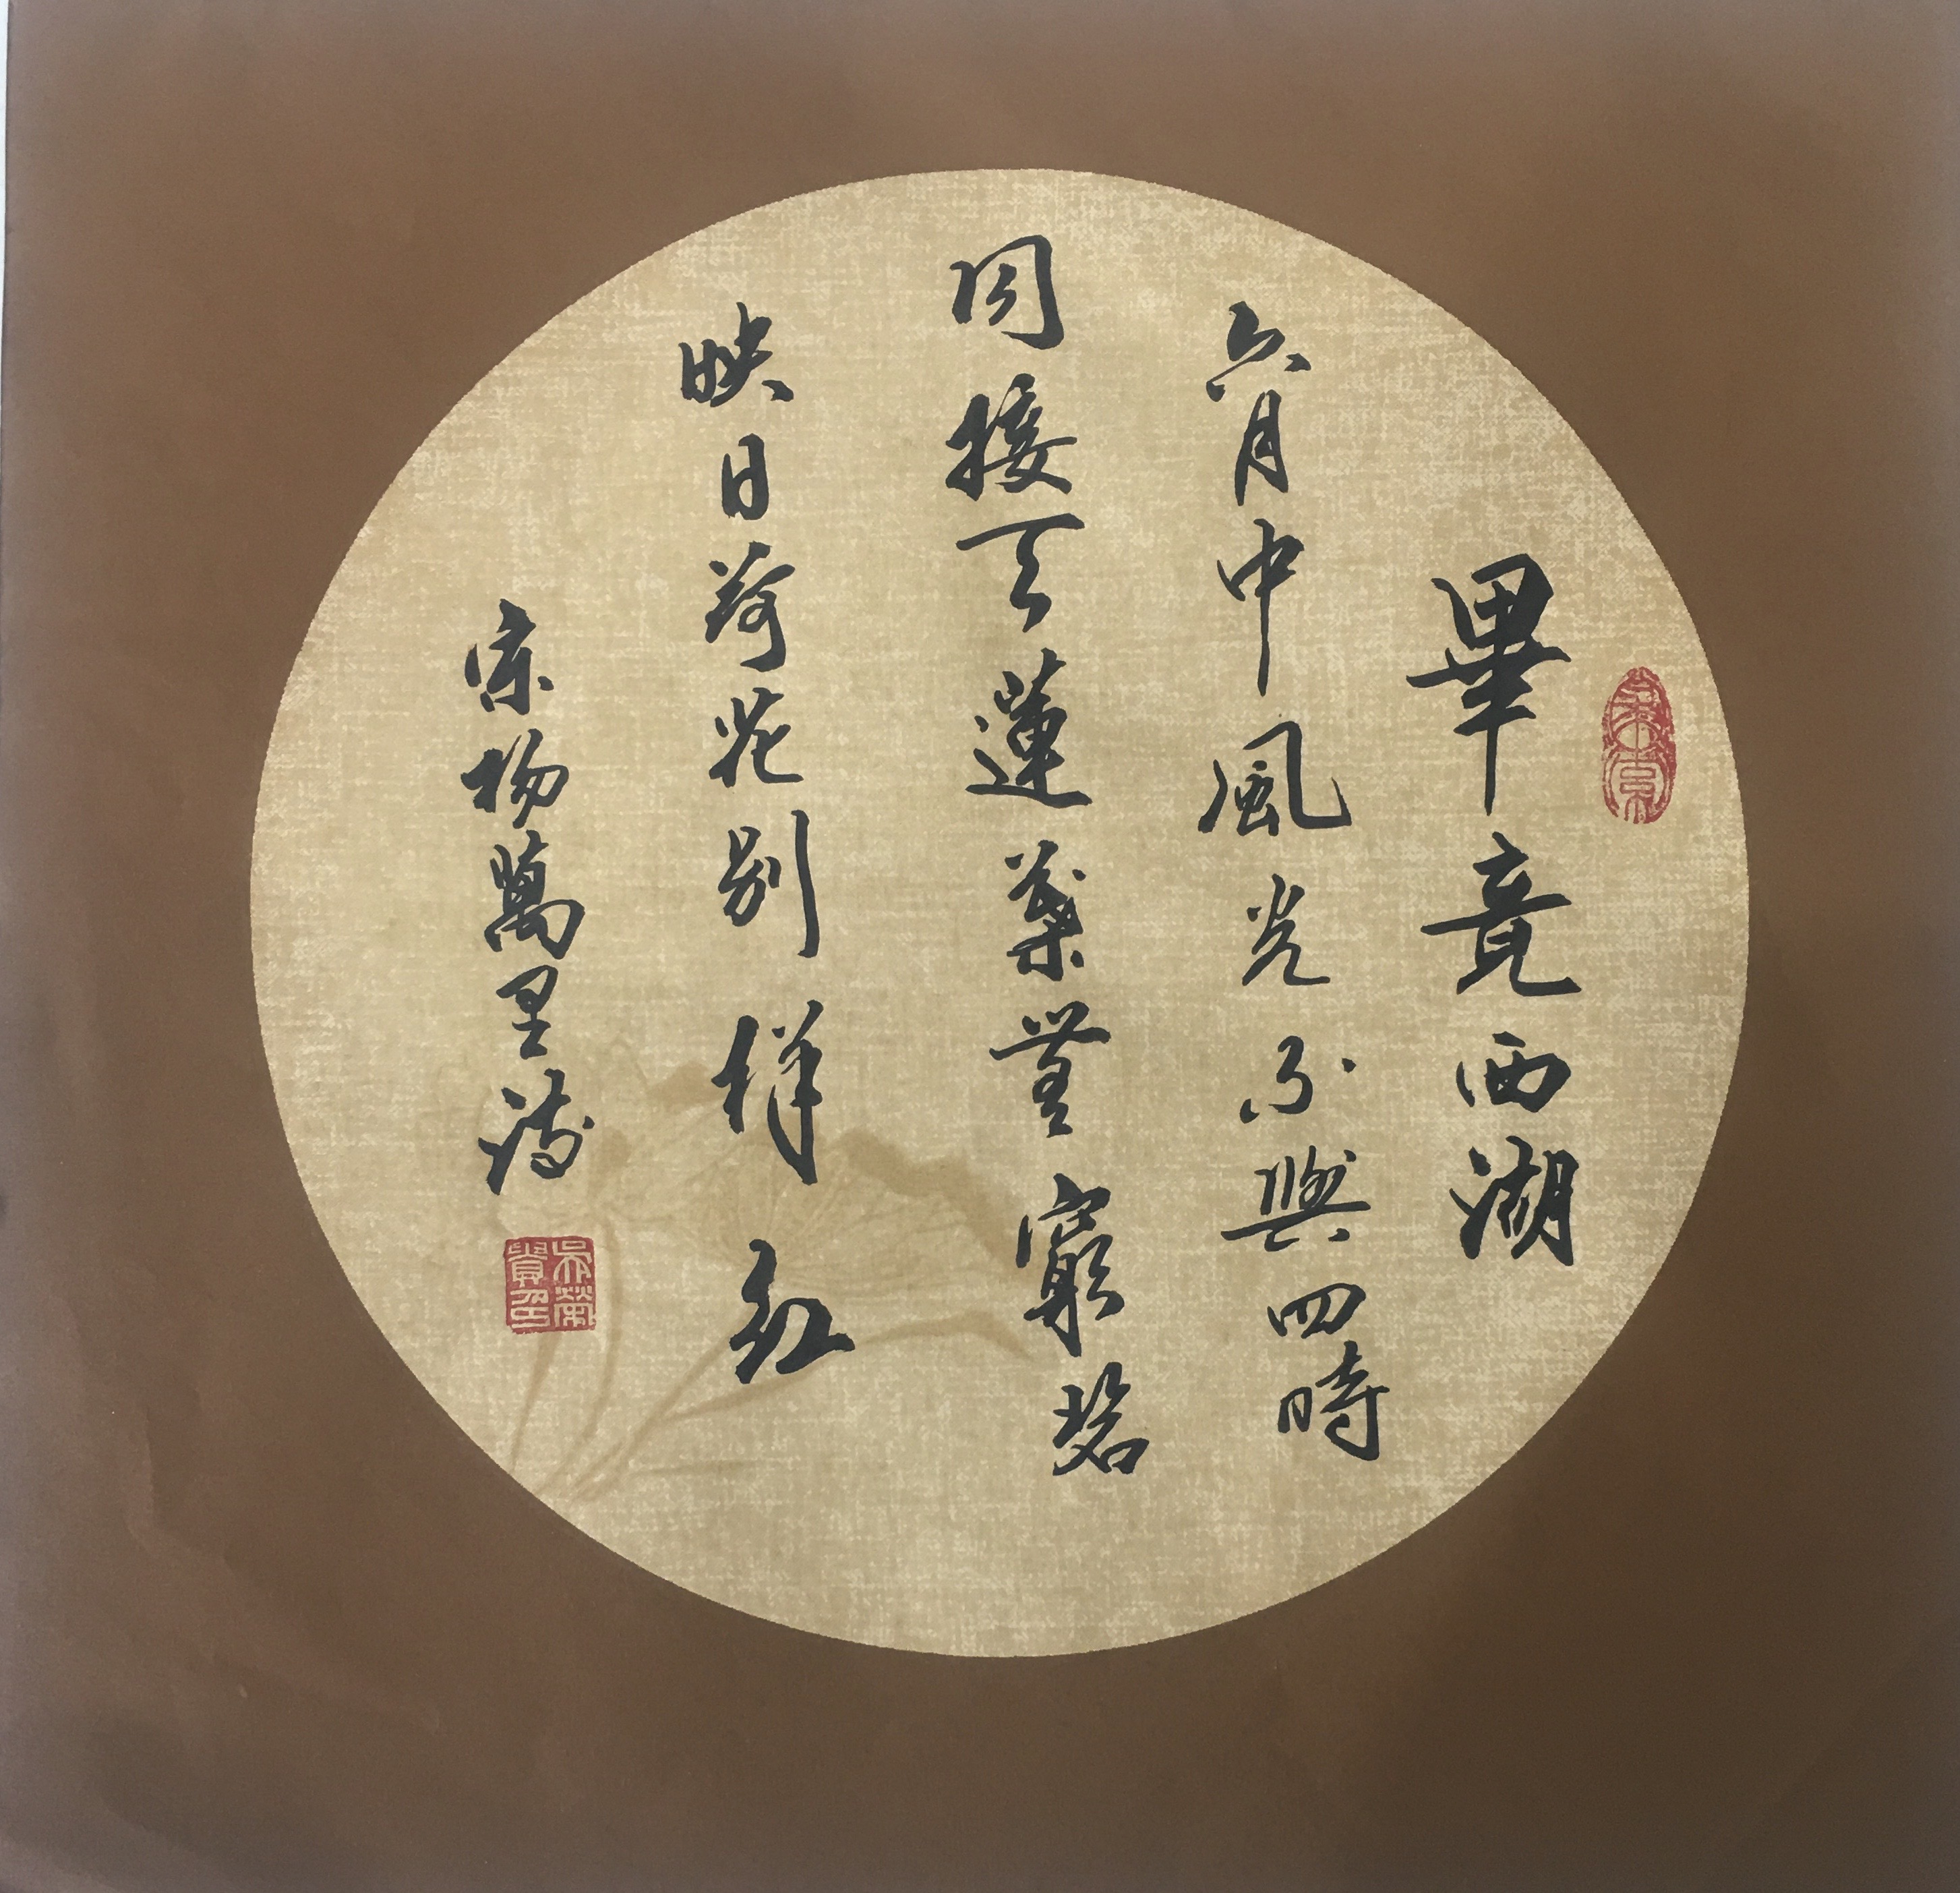 畢竟西湖
六月中風光不與四時
同接天蓮葉無窮碧
映日荷花別樣紅
宋楊萬里詩